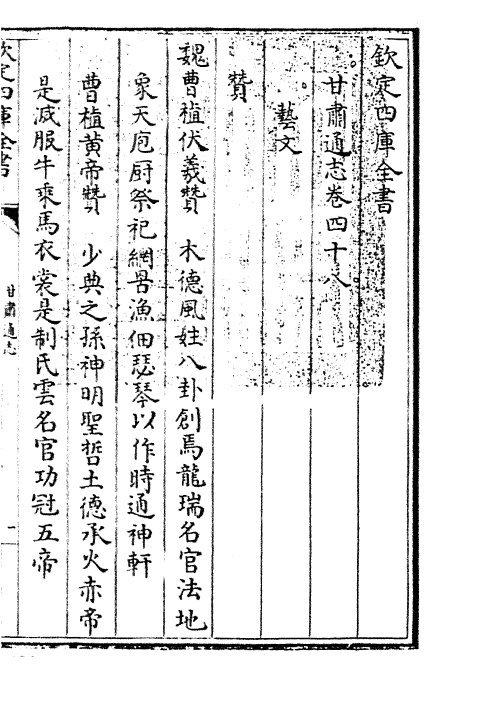 欽定四庫全書
甘肅通志卷四十八
藝文
贊
魏曹植伏羲贊　木德風姓八卦創焉龍瑞名官法地
象天庖厨祭祀網罟漁佃瑟琴以作時通神軒
曹植黄帝贊　少典之孫神明聖哲土德承火赤帝
是滅服牛乘馬衣裳是制氏雲名官功冠五帝
欽定四庫全書
甘肅通志
一